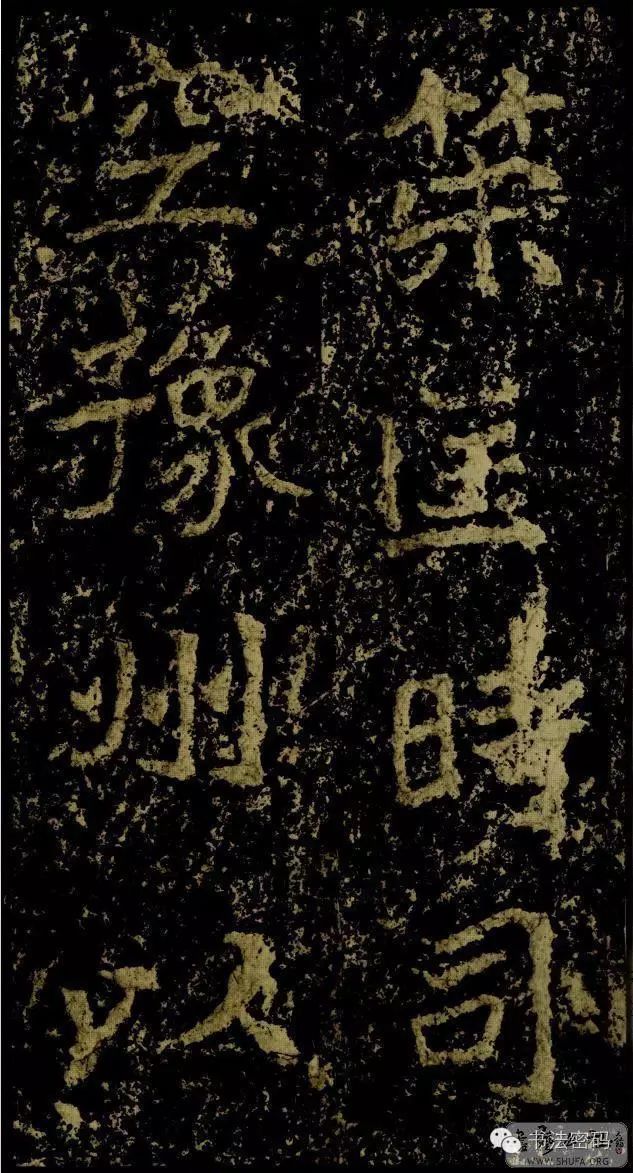 策匡時司
空豫州以
书法密码
WWW.SHUFA.ORG